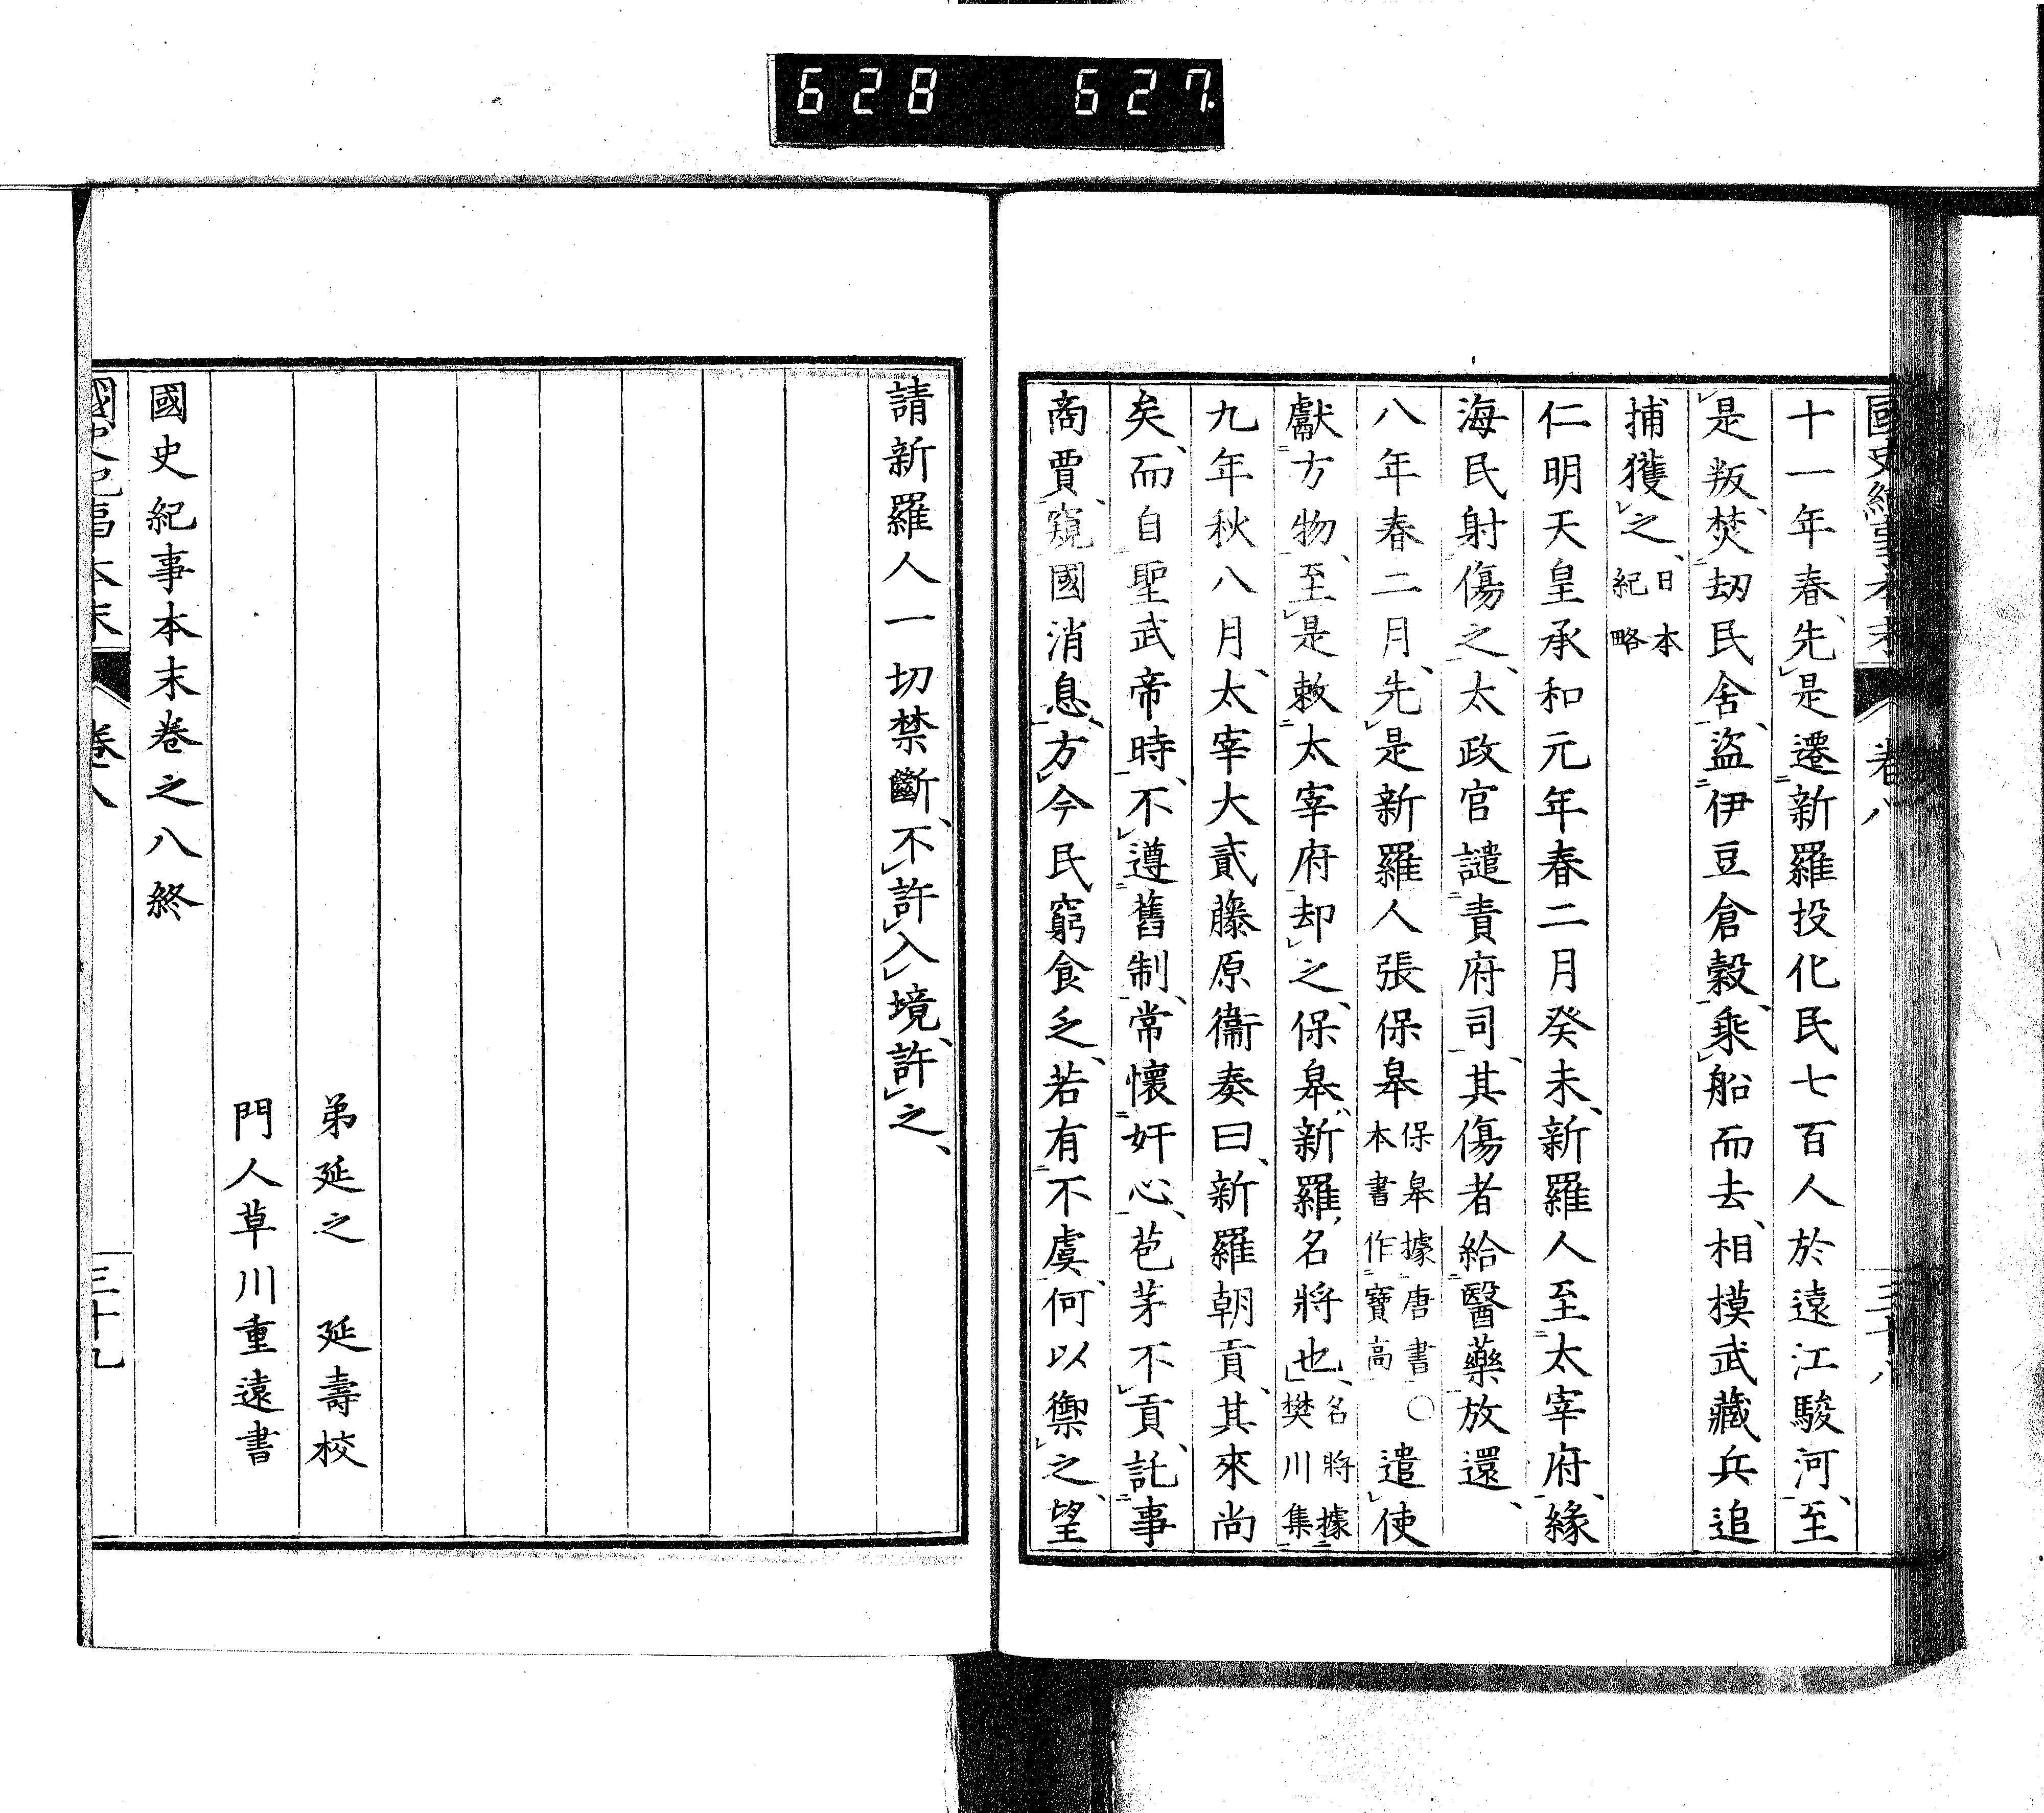 628 627
國史紀事本末 卷八 三十八
十一年春、先是遷新羅投化民七百人於遠江駿河、至
是叛、焚劫民舍、盜伊豆倉穀、乘船而去、相模武藏兵追
捕獲之、日本紀略
仁明天皇承和元年春二月癸未、新羅人至太宰府、緣
海民射傷之、太政官譴責府司、其傷者給醫藥放還、
八年春二月、先是新羅人張保皐保皐據唐書○本書作寶高遣使
獻方物、至是敕太宰府却之、保皐、新羅名將也、名將據樊川集
九年秋八月、太宰大貳藤原衞奏曰、新羅朝貢、其來尚
矣、而自聖武帝時、不遵舊制、常懷奸心、苞茅不貢、託事
商賈、窺國消息、方今民窮食乏、若有不虞、何以禦之、望
請新羅人一切禁斷、不許入境、許之、
弟延之 延壽校
門人草川重遠書
國史紀事本末卷之八終
國史紀事本末 卷八 三十九